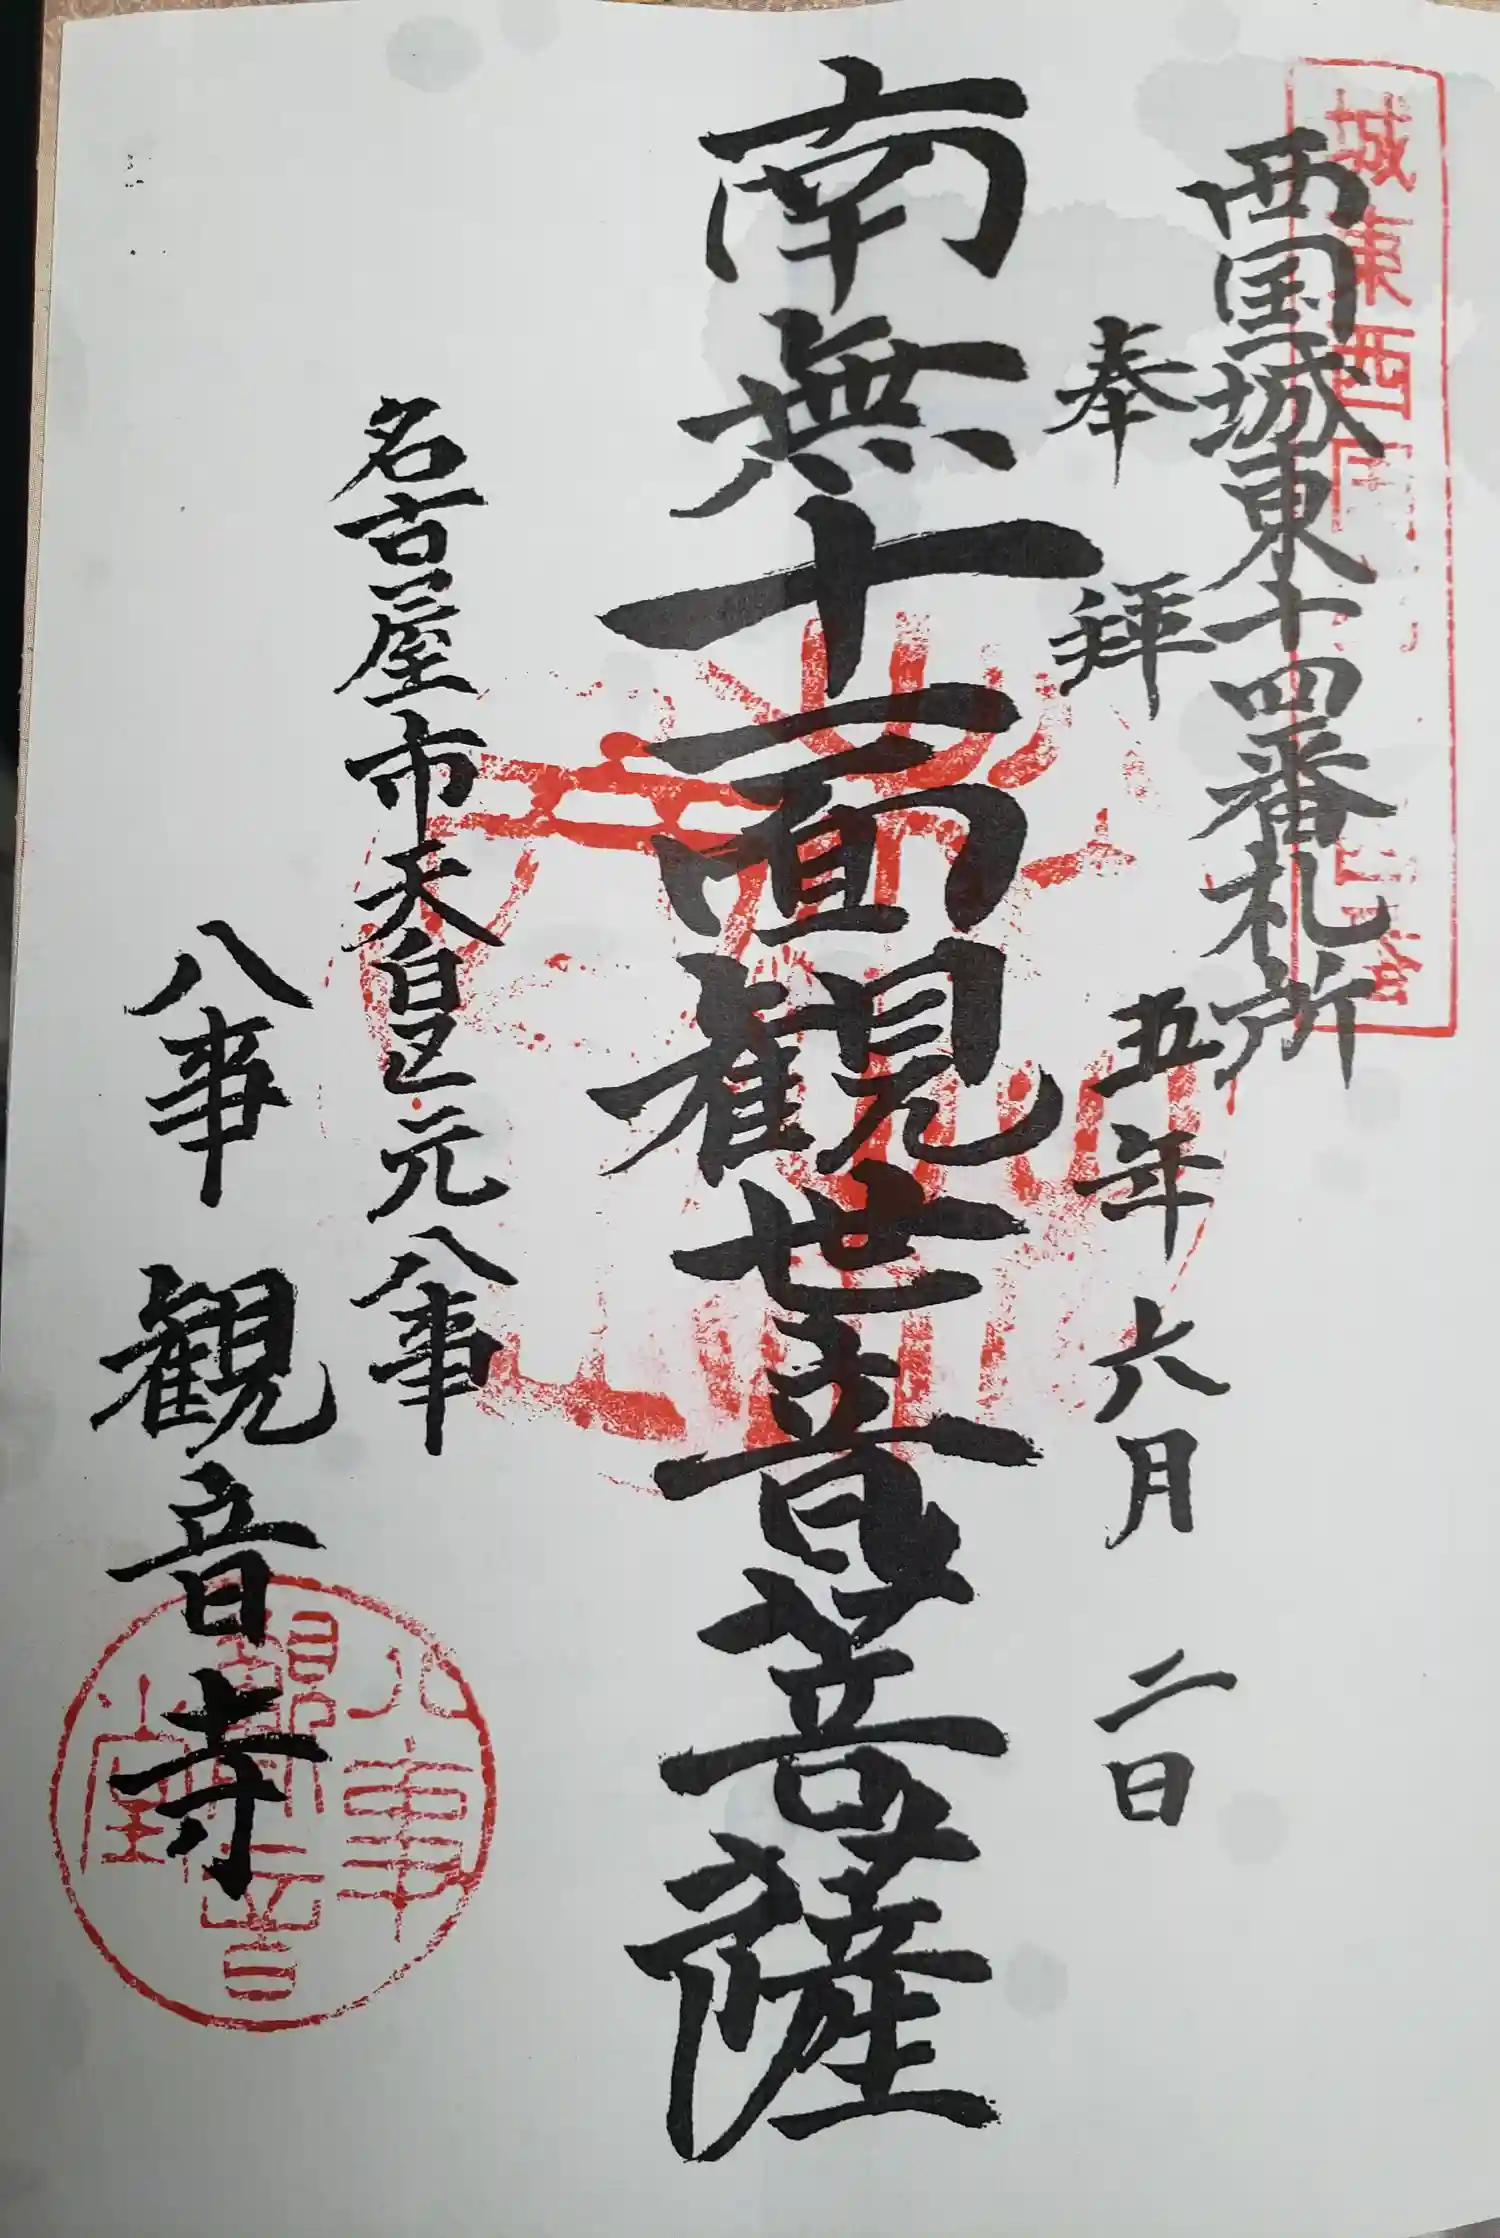 西国城東十四番札所
奉拝
五年六月二日
南無十一面観世音菩薩
名古屋市天白区元八事
八事観音寺
城東西国
八事
観音
堂